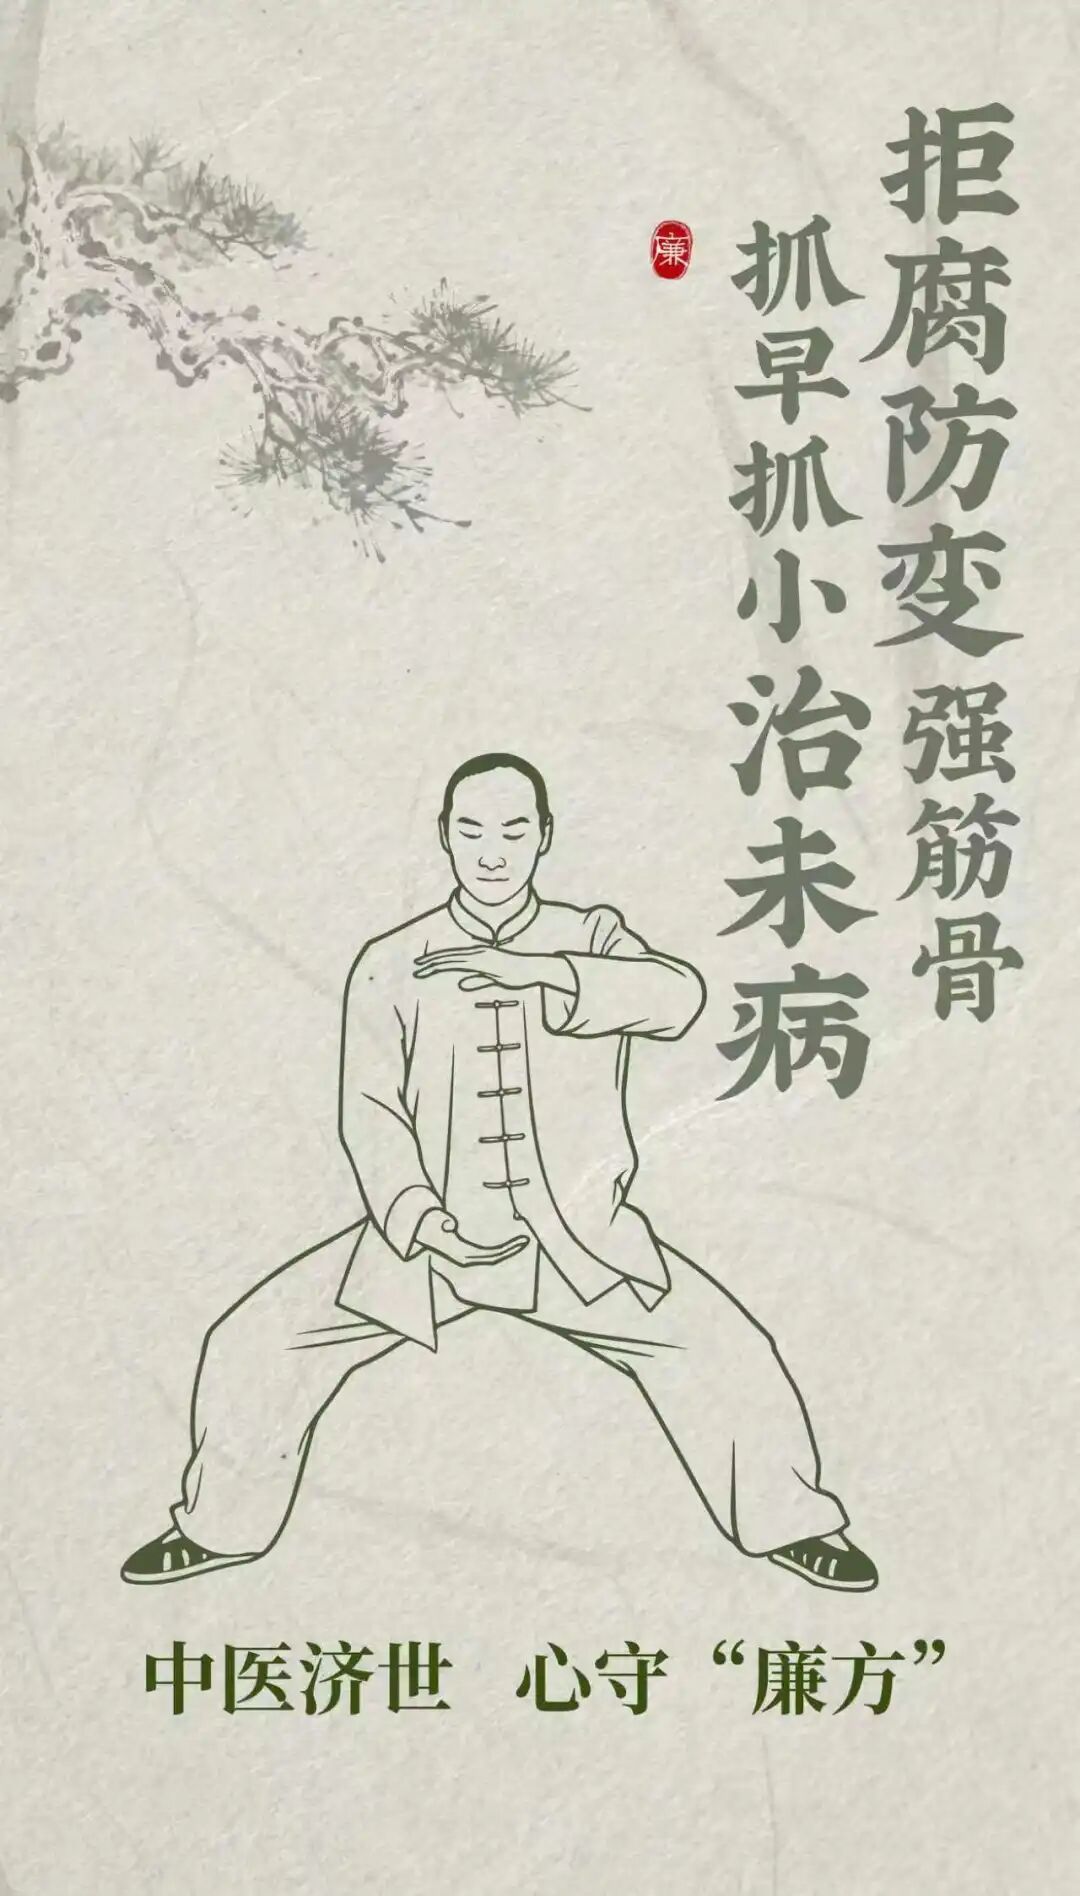 拒腐防变强筋骨
抓早抓小治未病
廉
中医济世 心守“廉方”